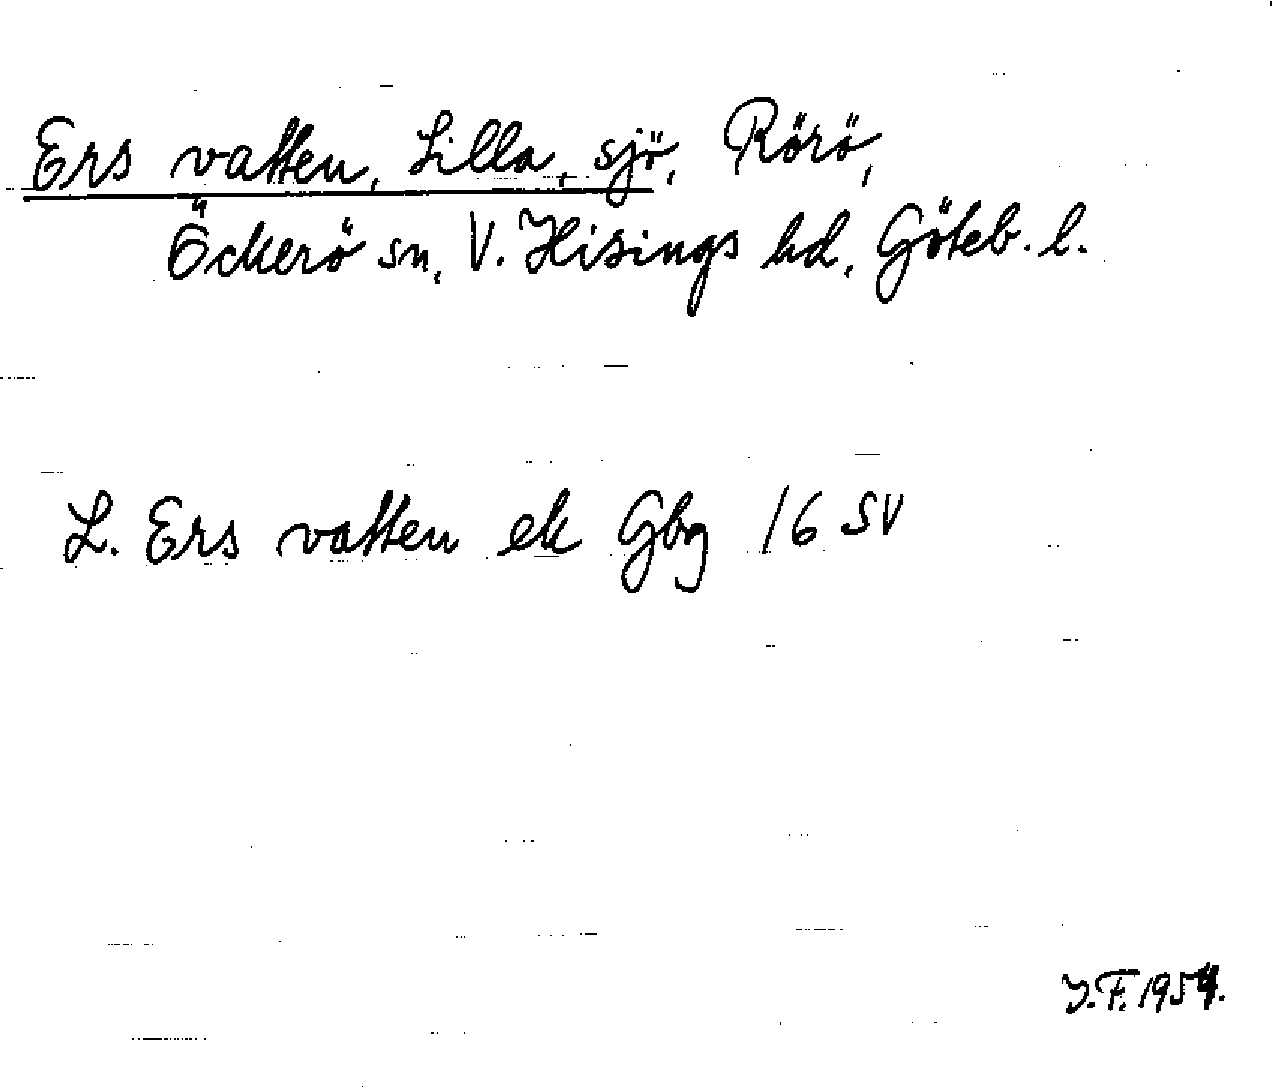 Ers vatten, Lilla, sjö, Rörö,
Öckerö sn, V. Hisings hd, Göteb. l.
L. Ers vatten ek Gbg 16 SV
J.F. 1954.